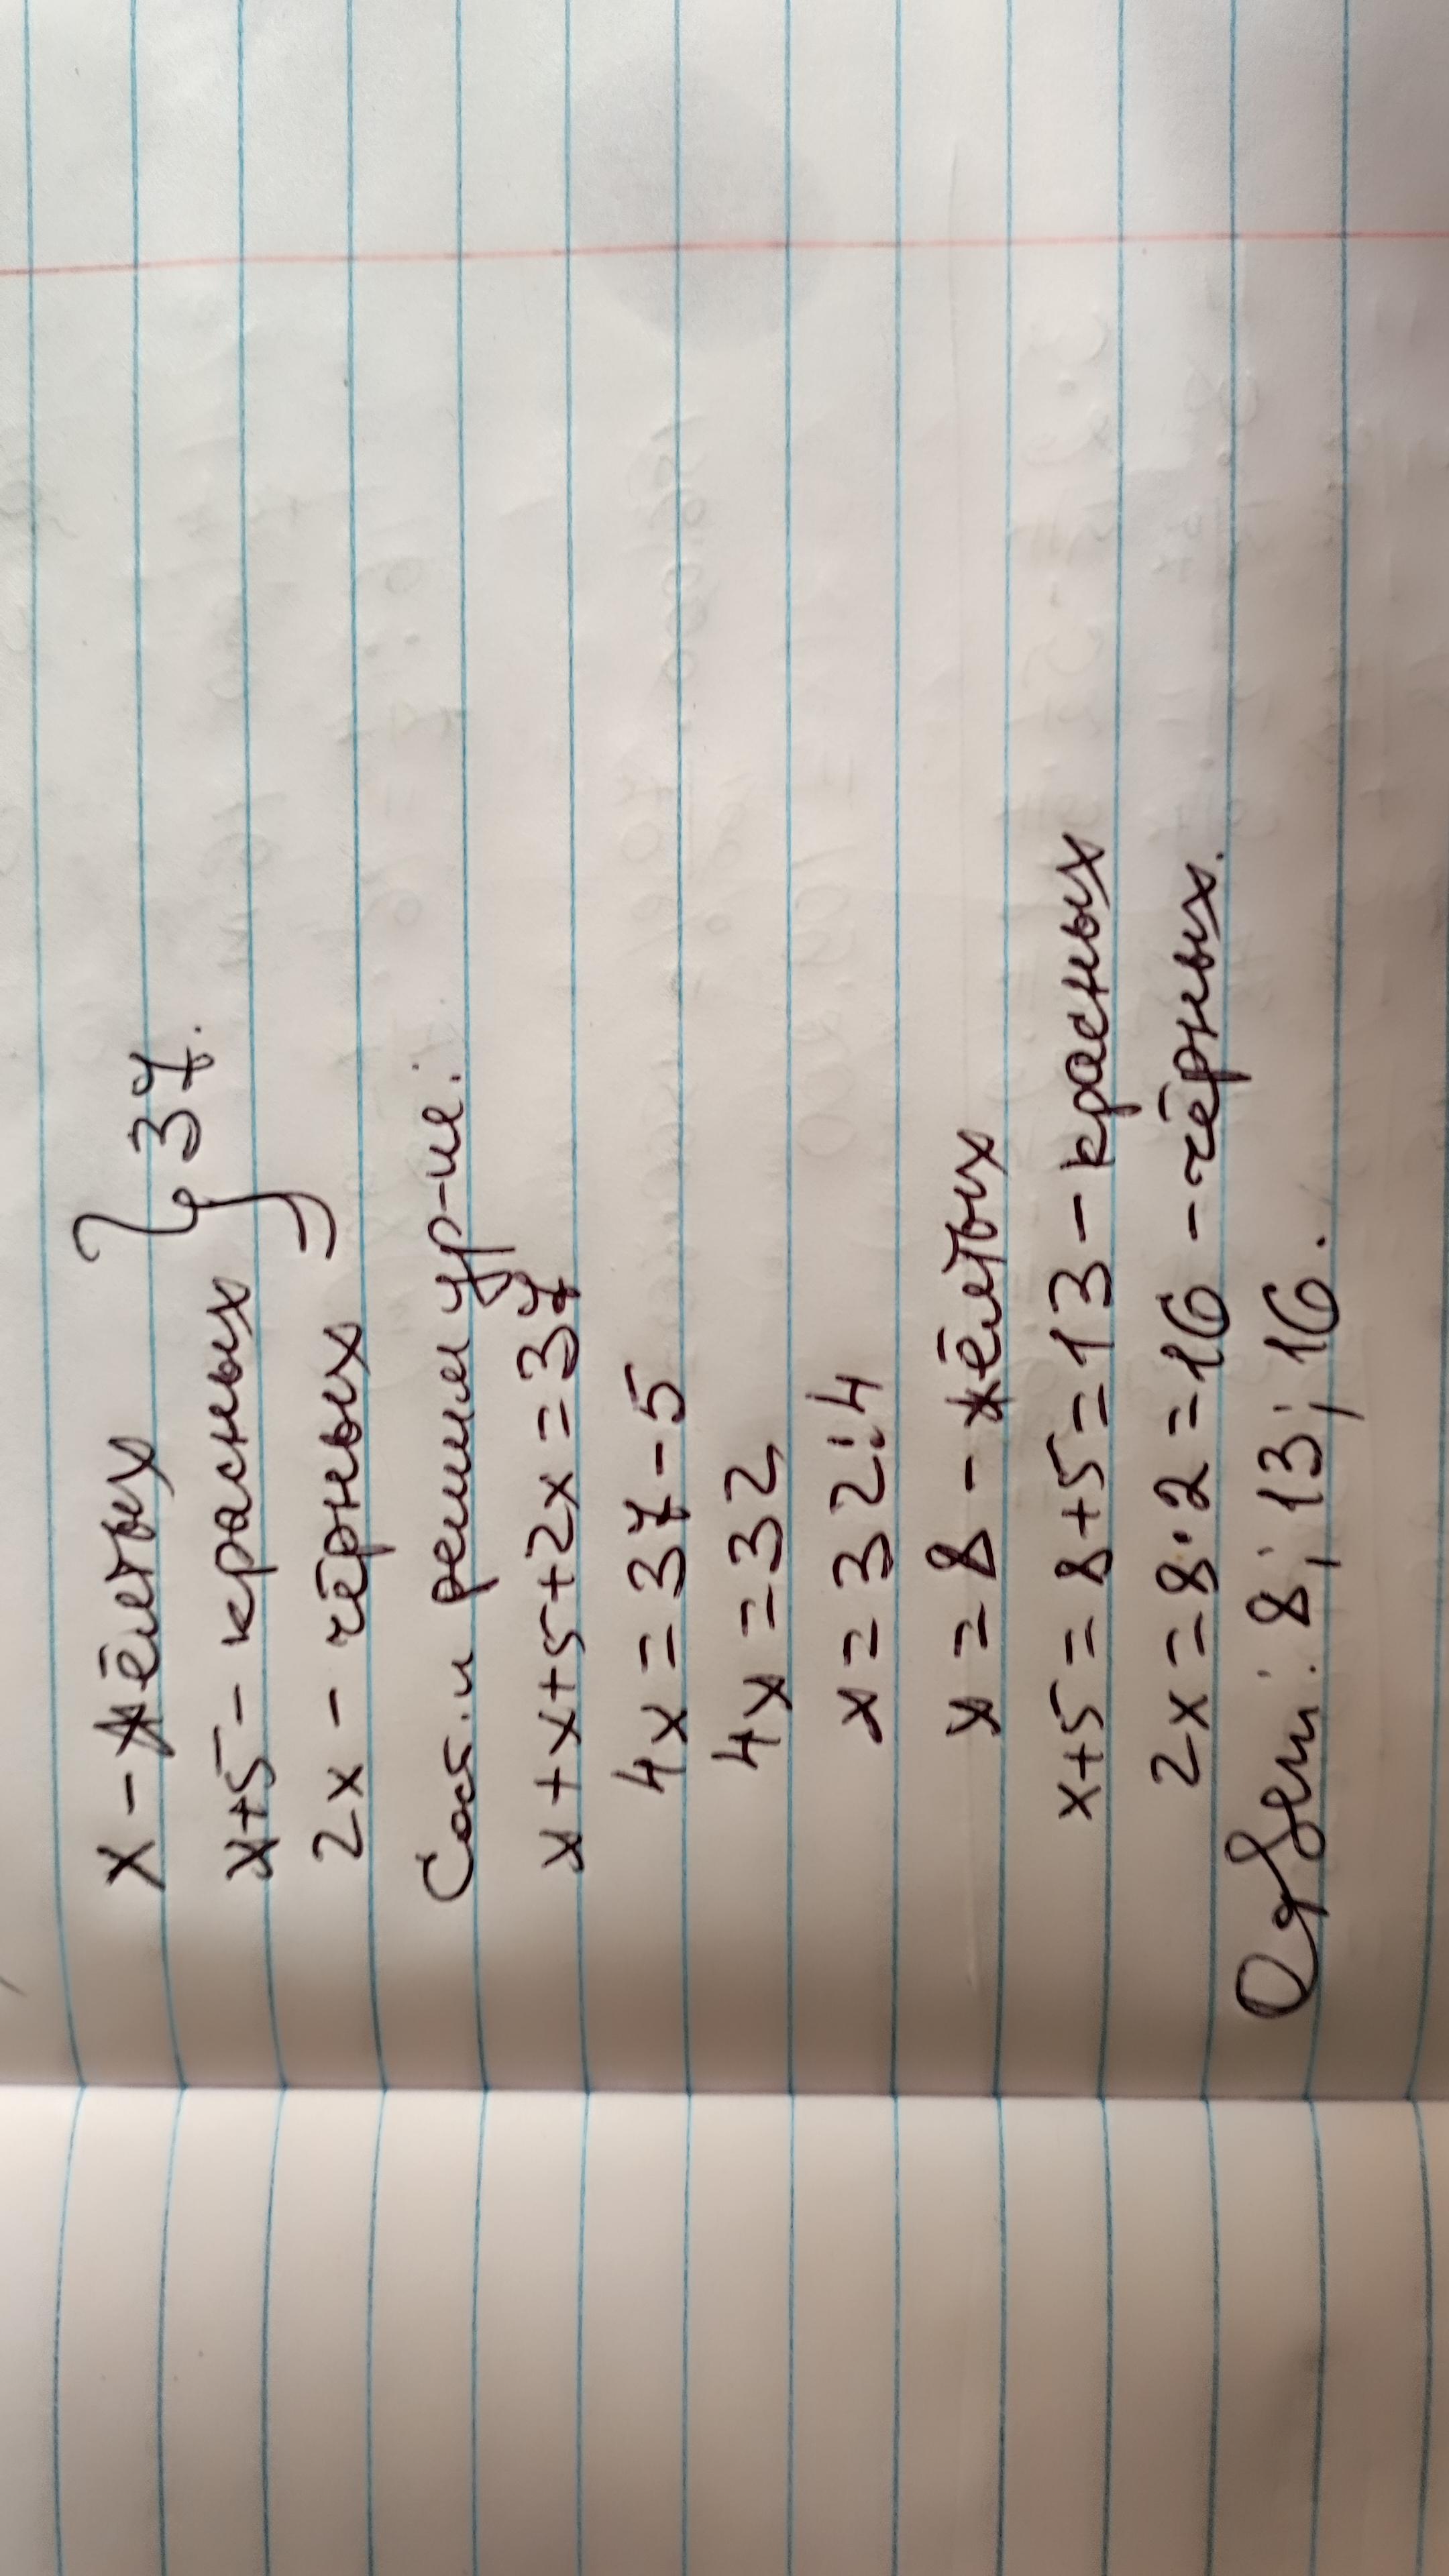 x - жёлтых
x+5 - красных } 37.
2x - чёрных
Сост. и решим ур-ие:
x+x+5+2x=37
4x=37-5
4x=32
x=32:4
x=8 - жёлтых
x+5=8+5=13 - красных
2x=8·2=16 - чёрных.
Ответ: 8; 13; 16.